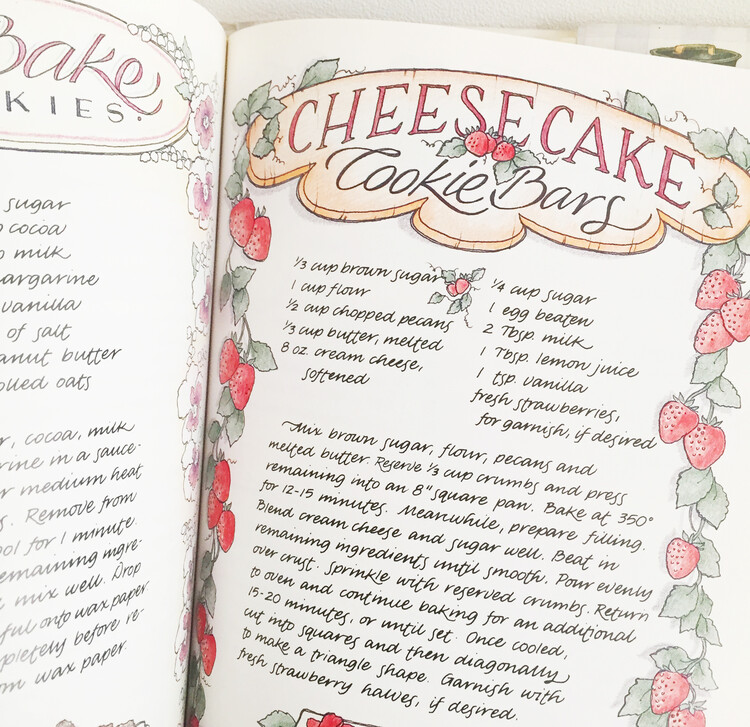 Bake
KIES.
sugar
cocoa
milk
margarine
vanilla
of salt
peanut butter
rolled oats
cocoa, milk
in a sauce-
medium heat
Remove from
for 1 minute.
remaining ingre-
mix well. Drop
onto wax paper
before re-
wax paper.
CHEESECAKE
Cookie Bars
1/3 cup brown sugar
1 cup flour
1/2 cup chopped pecans
1/3 cup butter, melted
8 oz. cream cheese,
softened
1/4 cup sugar
1 egg beaten
2 Tbsp. milk
1 Tbsp. lemon juice
1 tsp. vanilla
fresh strawberries,
for garnish, if desired
Mix brown sugar, flour, pecans and
melted butter. Reserve 1/3 cup crumbs and press
remaining into an 8" square pan. Bake at 350°
for 12-15 minutes. Meanwhile, prepare filling.
Blend cream cheese and sugar well. Beat in
remaining ingredients until smooth. Pour evenly
over crust. Sprinkle with reserved crumbs. Return
to oven and continue baking for an additional
15-20 minutes, or until set. Once cooled,
cut into squares and then diagonally
to make a triangle shape. Garnish with
fresh strawberry halves, if desired.